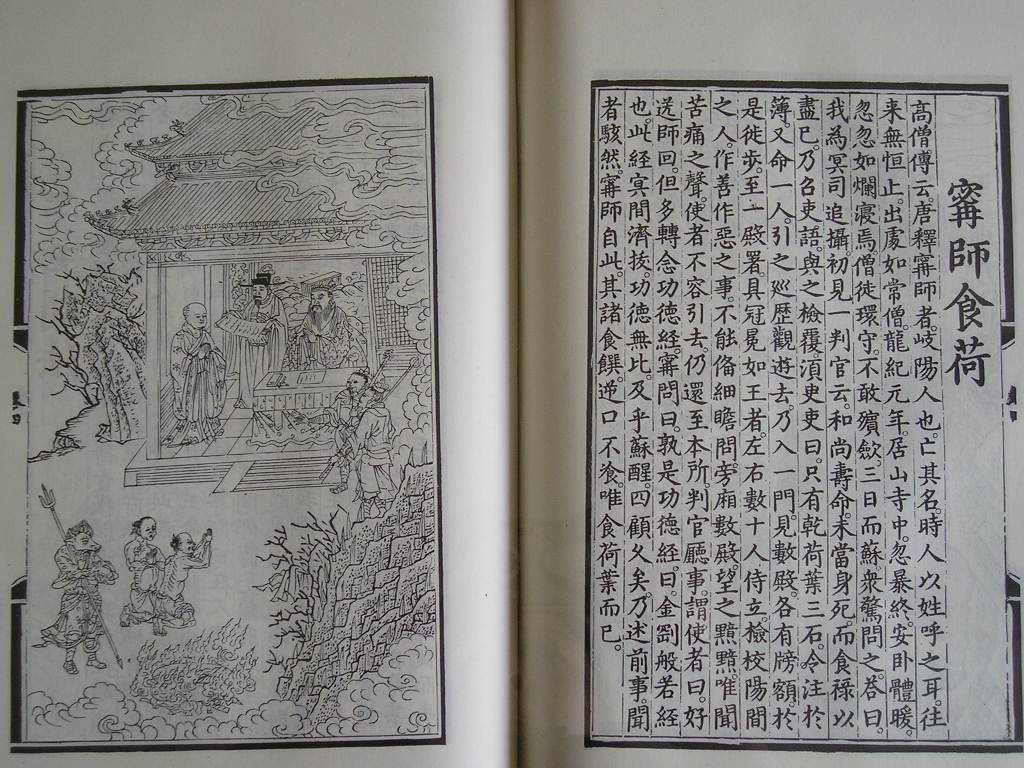 甯師食荷
高僧傳云唐釋甯師者。岐陽人也。亡其名。時人以姓呼之耳。往
来無恒止。出處如常僧。龍紀元年。居山寺中。忽暴終。安卧體暖。
忽忽如爛寢焉。僧徒環守。不敢殯歛。三日而蘇。衆驚問之。荅曰。
我為冥司追攝。初見一判官云。和尚壽命。未當身死。而食祿以
盡已。乃召吏語。與之檢覆。湏吏吏曰。只有乾荷葉三石。今注於
薄。又命一人。引之巡歴觀遊去。乃入一門。見數殿。各有牓額。於
是徙步。至一殿署。具冠冕如王者。左右數十人侍立。檢校陽間
之人。作善作惡之事。不能俻細瞻問。旁廂。數殿。望之黯黯。唯聞
苦痛之聲。使者不容引去。仍還至本所。判官廳事。謂使者曰。好
送師回。但多轉念功徳經。甯問曰。孰是功徳經。曰。金剛般若經
也。此經冥間濟拔。功徳無比。及乎蘇醒。四顧久矣。乃述前事。聞
者駭然。甯師自此。其諸食饌。逆口不飡。唯食荷葉而已。